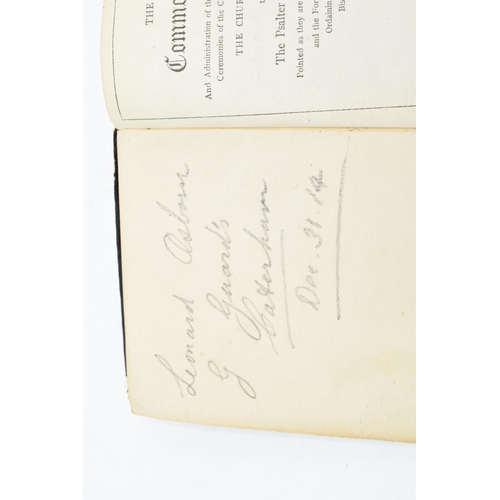 THE
Commo
And Administration of the
Ceremonies of the C
THE CHUR
The Psalter
Pointed as they are
and the For
Ordainin
Bis
Leonard Osborn
G Guards
Caterham
Dec. 31. 14.